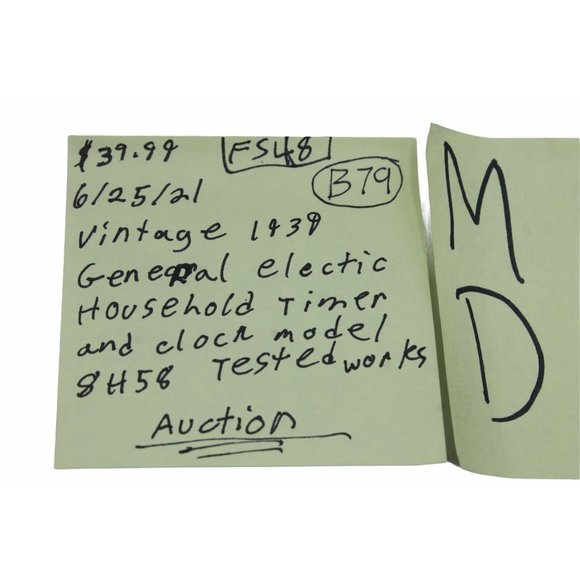 $39.99 FS48
6/25/21 B79
Vintage 1939
General electic
Household Timer
and clock model
8H58 Tested works
Auction
M
D